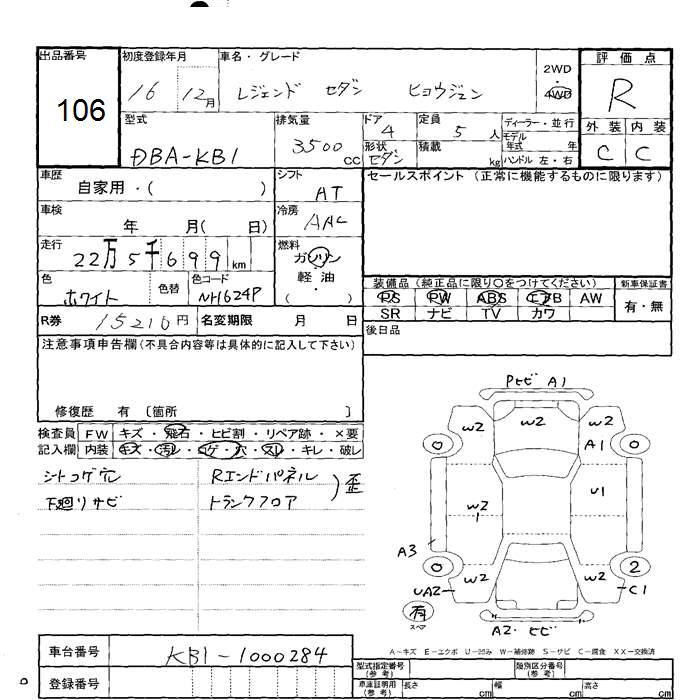 出品番号 初度登録年月 車名・グレード 2WD・4WD 評価点
106 16 12月 レジェンド セダン ヒョウジュン R
型式 排気量 ドア 4 定員 5 人 ディーラー・並行 外装 内装
DBA-KB1 3500 cc 形状 セダン 積載 kg モデル年式 年 ハンドル 左・右 C C
車歴 自家用・( ) シフト AT セールスポイント (正常に機能するものに限ります)
車検 年 月( 日) 冷房 AAC
走行 22万5千699km 燃料 ガソリン 軽・油 ( )
色 ホワイト 色替 色コード NH624P
装備品 (純正品に限り○をつけてください) 新車保証書
PS PW ABS エアB AW 有・無
SR ナビ TV カワ
R券 15210円 名変期限 月 日 後日品
注意事項申告欄(不具合内容等は具体的に記入して下さい)
修復歴 有 〔箇所 〕
検査員 FW キズ・飛石・ヒビ割・リペア跡・×要
記入欄 内装 キズ・汚レ・コゲ・穴・スレ・キレ・破レ
シートコゲ穴 Rエンドパネル
下廻りサビ トランクフロア 歪
Pヒビ A1
W2 W2 W2
A1
W2 1 U1
A3
2
UA2 W2 W2 C1
有 スペア
A2・ヒビ
A〜キズ E〜エクボ U〜凹み W〜補修跡 S〜サビ C〜腐食 XX〜交換済
車台番号 KB1-1000284
登録番号
型式指定番号(参考) 類別区分番号(参考)
車庫証明用(参考) 長さ cm 幅 cm 高さ cm